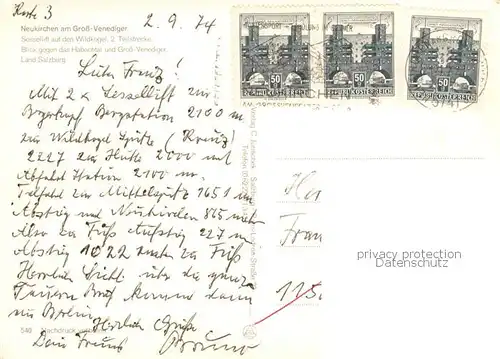 Karte 3
2.9.74
Neukirchen am Groß-Venediger
Sessellift auf den Wildkogel, 2. Teilstrecke
Blick gegen das Habachtal und Groß-Venediger
Land Salzburg
Lieber Franz!
Mit 2 x Sessellift zur
Bergstation 2100 m
zur Wildkogel Spitze (Kreuz)
2227 zur Hütte 2000 mit
Abfahrt Station 2100 m.
Talfahrt zur Mittelspitz 1651 m
Abstieg nach Neukirchen 865 meter
Also zu Fuß Aufstieg 227 m
Abstieg 1022 meter zu Fuß
Herrliche Sicht über die ganze
Tauern
Berlin
Herzliche Grüße
Dein Freund Bruno
540 Nachdruck
50 50 50
REPUBLIK ÖSTERREICH REPUBLIK ÖSTERREICH REPUBLIK ÖSTERREICH
5741
Fran
115
privacy protection
Datenschutz